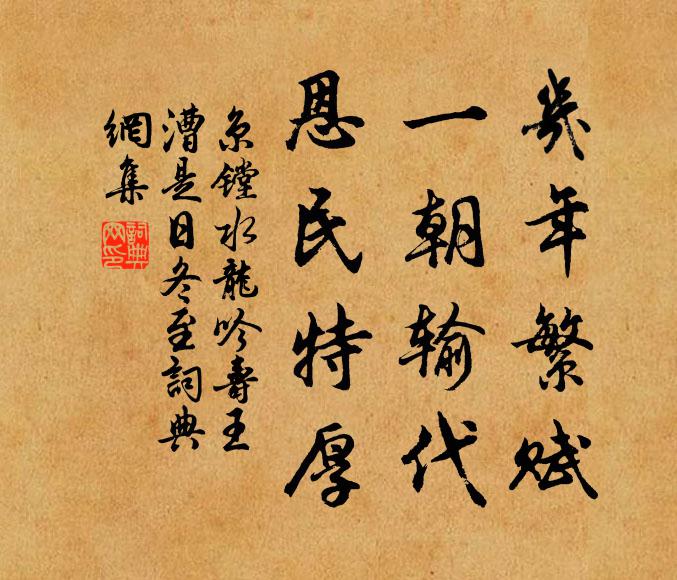 幾年繁赋
一朝输代
恩民特厚
京镗水龍吟壽王
漕是日冬至詞典
網集
詞典
网印